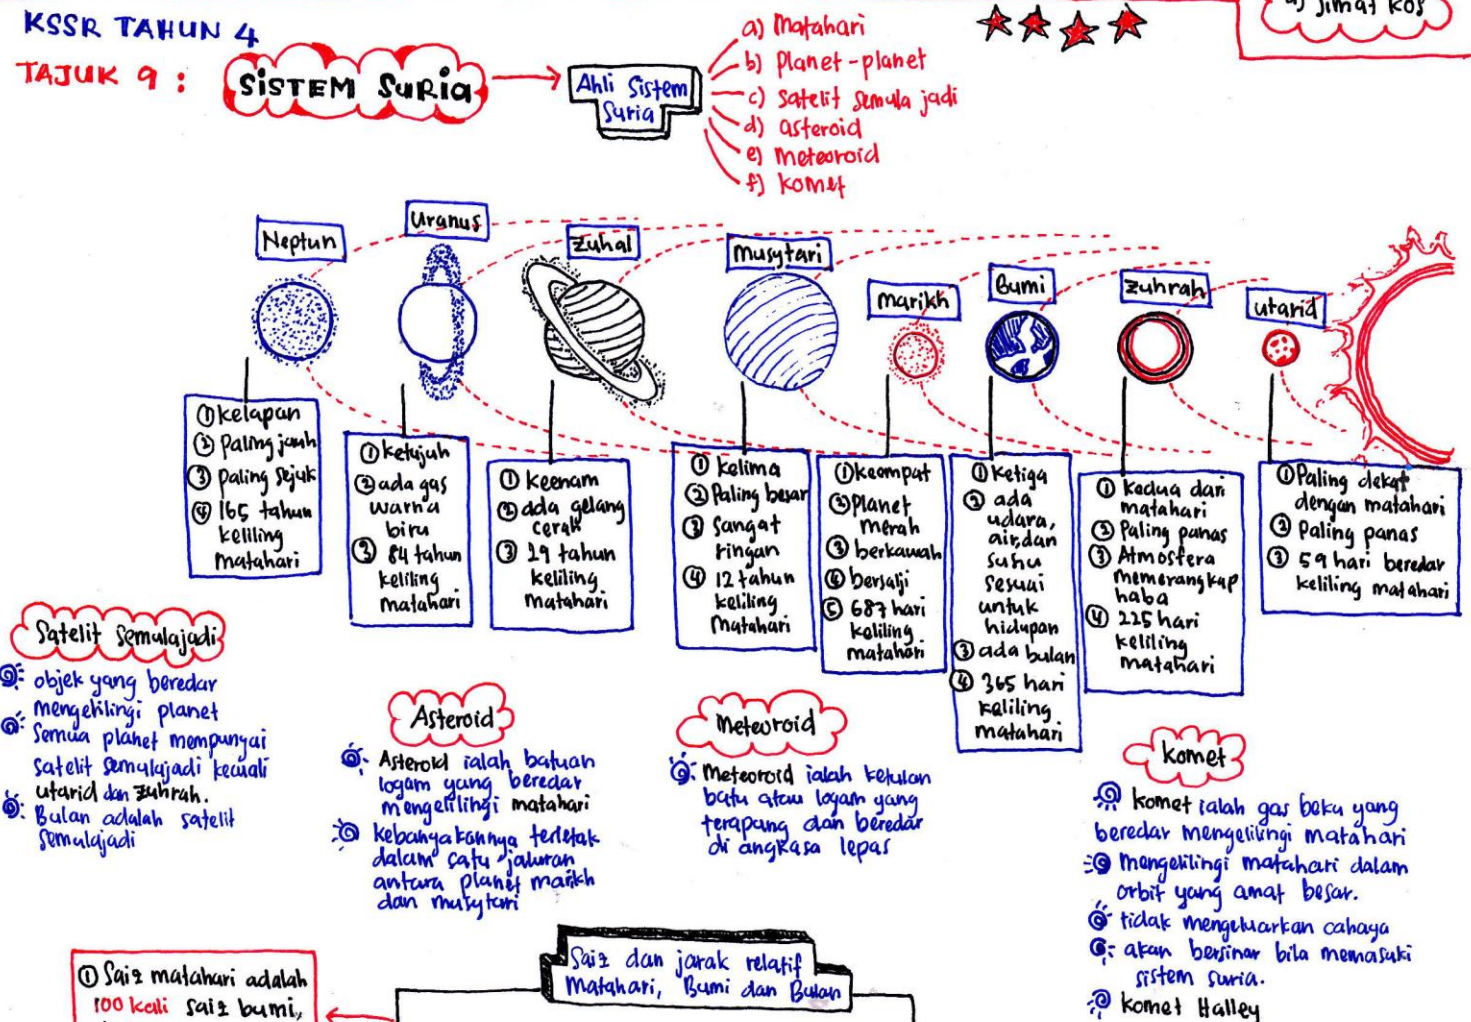 KSSR TAHUN 4
TAJUK 9 :
SISTEM SURIA
Ahli Sistem
Suria
a) Matahari
b) Planet-planet
c) Satelit semula jadi
d) asteroid
e) Meteoroid
f) Komet
a) Jimat kos
Neptun
Uranus
Zuhal
Musytari
Marikh
Bumi
Zuhrah
utarid
① Kelapan
② Paling jauh
③ Paling Sejuk
④ 165 tahun
keliling
Matahari
① Ketujuh
② ada gas
warna
biru
③ 84 tahun
keliling
matahari
① Keenam
② ada gelang
cerah
③ 29 tahun
keliling
Matahari
① kelima
② Paling besar
③ Sangat
ringan
④ 12 tahun
keliling
Matahari
① keempat
② Planet
merah
③ berkawah
④ bersalji
⑤ 687 hari
keliling
matahari
① Ketiga
② ada
udara,
air, dan
suhu
sesuai
untuk
hidupan
③ ada bulan
④ 365 hari
keliling
matahari
① Kedua dari
matahari
② Paling panas
③ Atmosfera
memerangkap
haba
④ 225 hari
keliling
matahari
① Paling dekat
dengan matahari
② Paling panas
③ 59 hari beredar
keliling matahari
Satelit Semulajadi
objek yang beredar
mengelilingi planet
Semua planet mempunyai
satelit semulajadi kecuali
utarid dan zuhrah.
Bulan adalah satelit
Semulajadi
Asteroid
Asteroid ialah batuan
logam yang beredar
mengelilingi matahari
kebanyakannya terletak
dalam satu jaluran
antara planet marikh
dan musytari
Meteoroid
Meteoroid ialah ketulan
batu atau logam yang
terapung dan beredar
di angkasa lepas
Komet
Komet ialah gas beku yang
beredar mengelilingi matahari
Mengelilingi matahari dalam
orbit yang amat besar.
tidak mengeluarkan cahaya
akan bersinar bila memasuki
sistem suria.
Komet Halley
Saiz dan jarak relatif
Matahari, Bumi dan Bulan
① Saiz matahari adalah
100 kali saiz bumi,